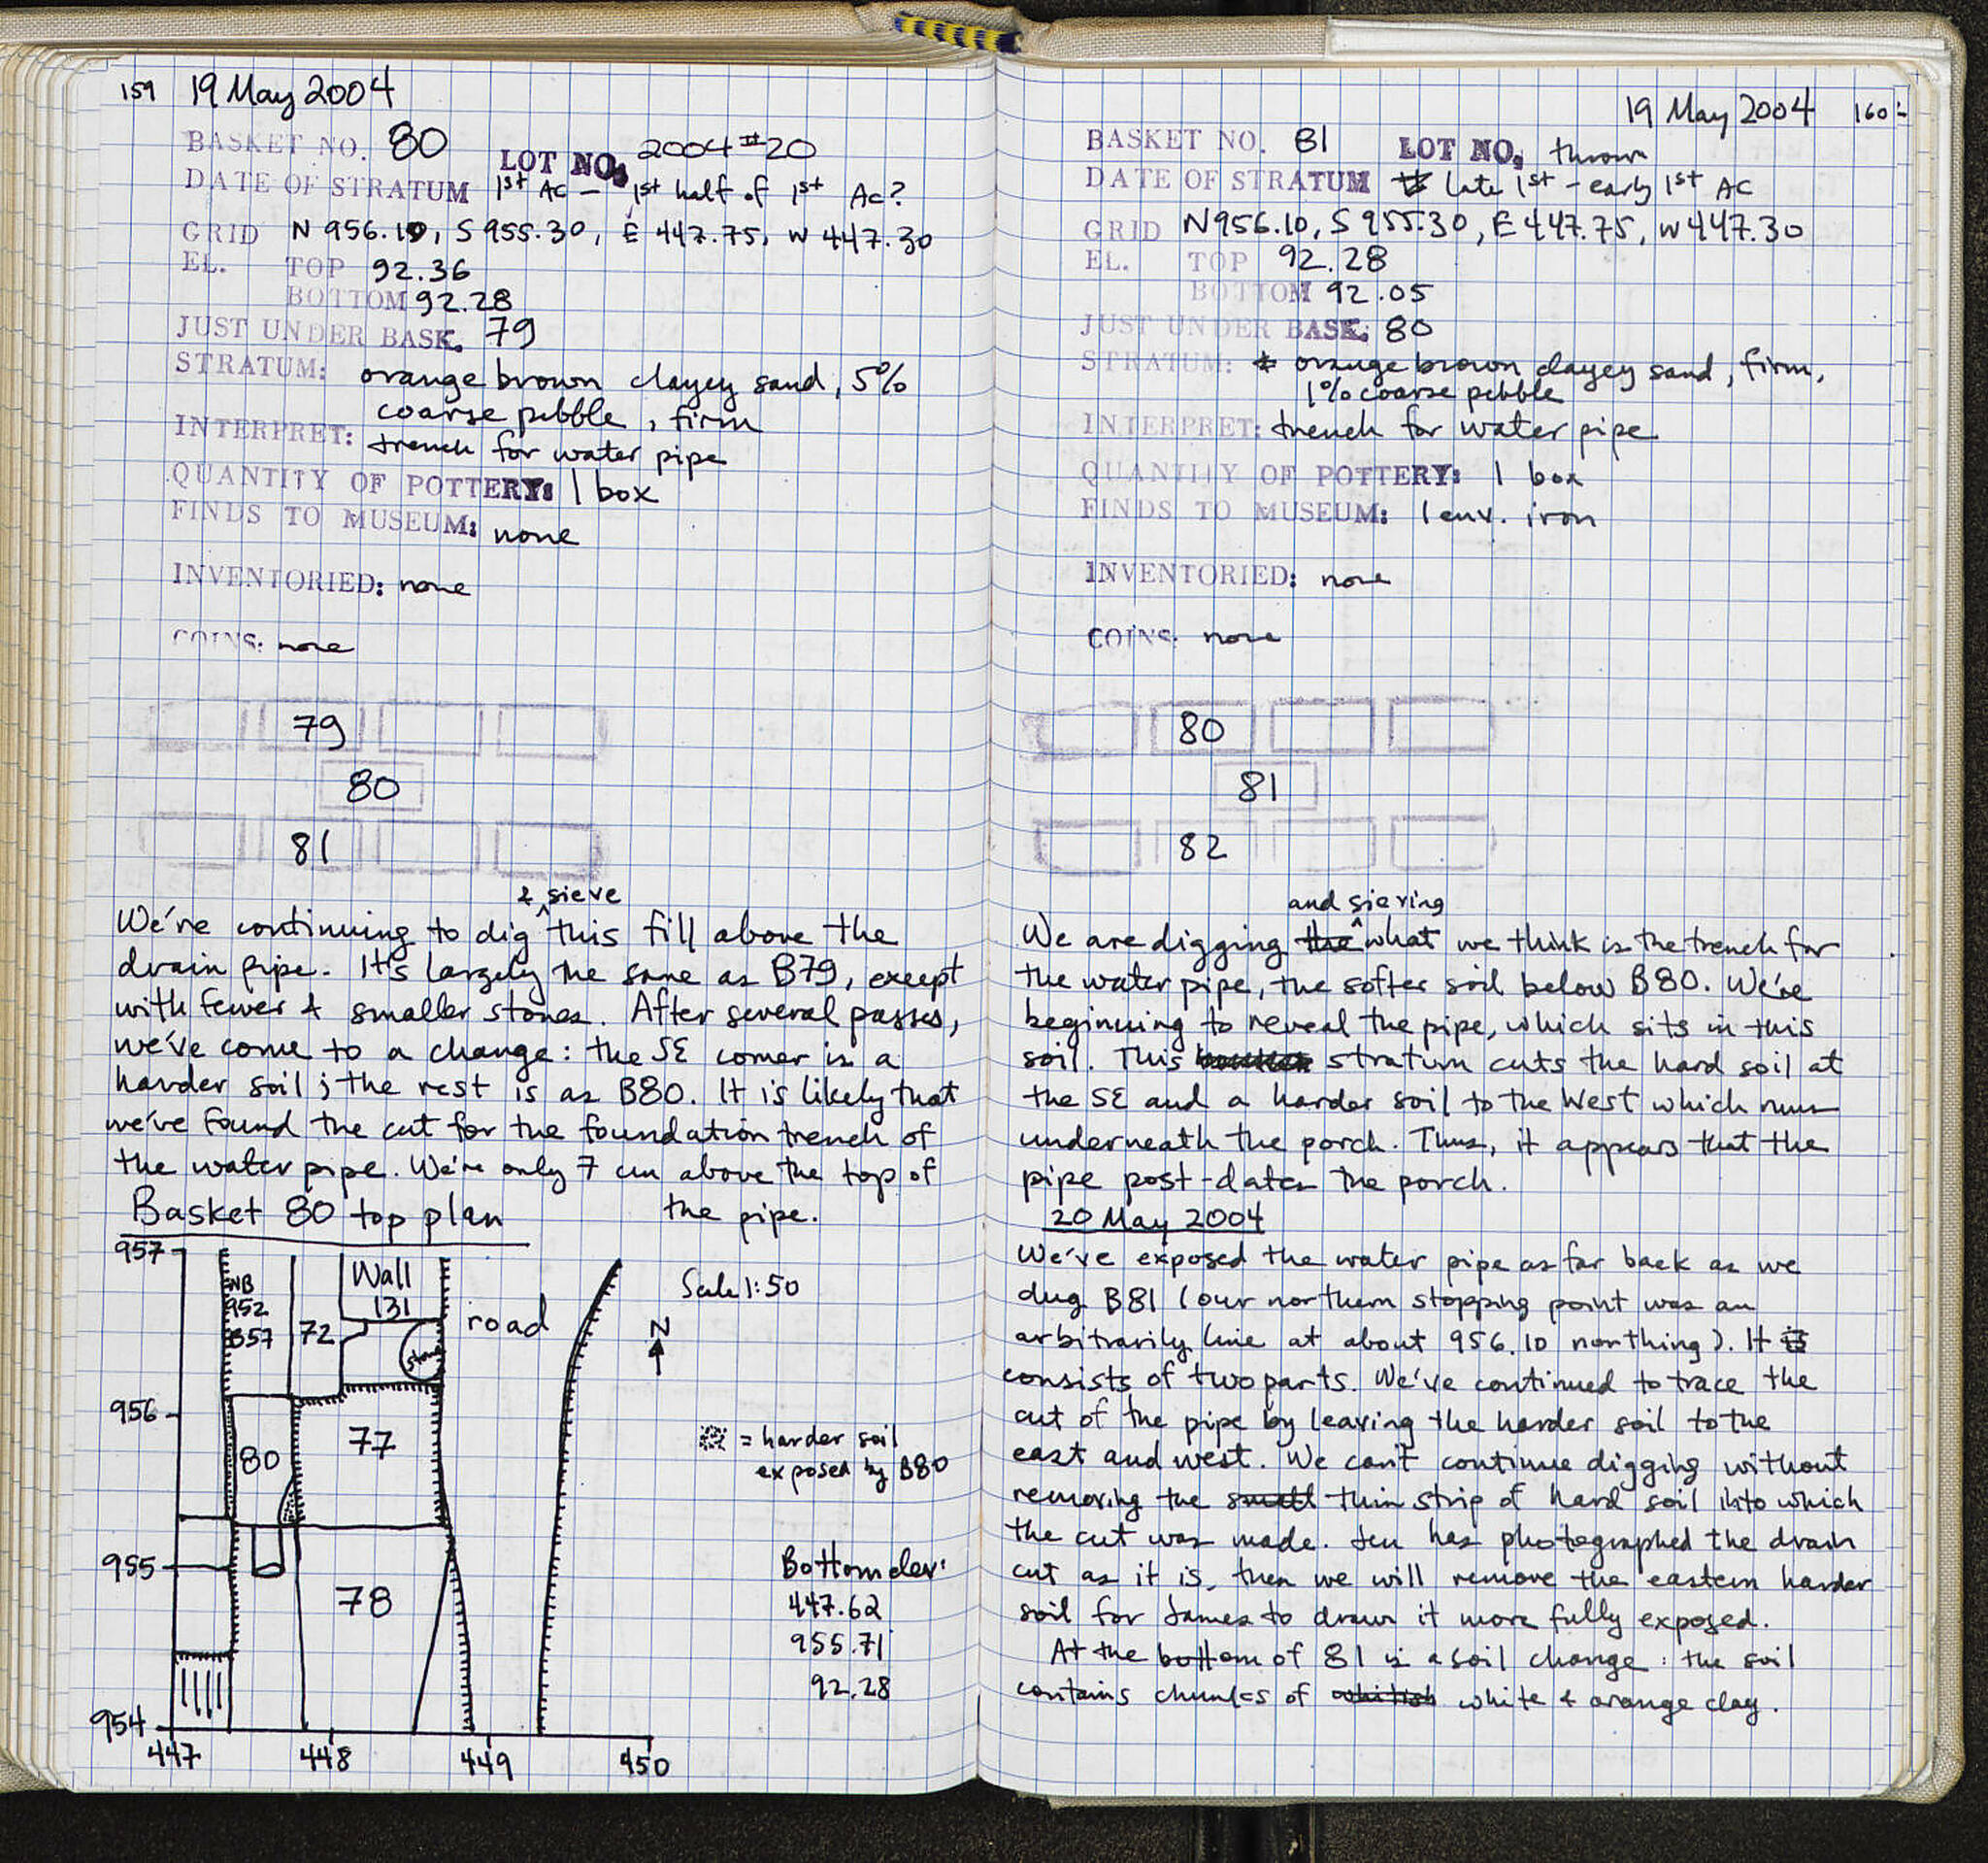 159 19 May 2004
BASKET NO. 80 LOT NO. 2004 #20
DATE OF STRATUM 1st AC – 1st half of 1st AC?
GRID N 956.10, S 955.30, E 447.75, W 447.30
EL. TOP 92.36
BOTTOM 92.28
JUST UNDER BASK. 79
STRATUM: orange brown clayey sand, 5%
coarse pebble, firm
INTERPRET: trench for water pipe
QUANTITY OF POTTERY: 1 box
FINDS TO MUSEUM: none
INVENTORIED: none
COINS: none
79
80
81
& sieve
We're continuing to dig ^ this fill above the
drain pipe. It's largely the same as B79, except
with fewer & smaller stones. After several passes,
we've come to a change: the SE corner is a
harder soil; the rest is as B80. It is likely that
we've found the cut for the foundation trench of
the water pipe. We're only 7 cm above the top of
the pipe.
Basket 80 top plan
957
NB
952
B57
72
Wall
131
stone
road
Scale 1:50
N
956
80
77
= harder soil
exposed by B80
955
78
Bottom elev:
447.62
955.71
92.28
954
447 448 449 450
19 May 2004 160
BASKET NO. 81 LOT NO. thrown
DATE OF STRATUM late 1st – early 1st AC
GRID N956.10, S 955.30, E 447.75, W 447.30
EL. TOP 92.28
BOTTOM 92.05
JUST UNDER BASK. 80
STRATUM: orange brown clayey sand, firm,
1% coarse pebble
INTERPRET: trench for water pipe
QUANTITY OF POTTERY: 1 box
FINDS TO MUSEUM: 1 env. iron
INVENTORIED: none
COINS: none
80
81
82
and sieving
We are digging the ^ what we think is the trench for
the water pipe, the softer soil below B80. We're
beginning to reveal the pipe, which sits in this
soil. This stratum cuts the hard soil at
the SE and a harder soil to the West which runs
underneath the porch. Thus, it appears that the
pipe post-dates the porch.
20 May 2004
We've exposed the water pipe as far back as we
dug B81 (our northern stopping point was an
arbitrarily line at about 956.10 northing). It is
consists of two parts. We've continued to trace the
cut of the pipe by leaving the harder soil to the
east and west. We can't continue digging without
removing the small thin strip of hard soil into which
the cut was made. Jen has photographed the drain
cut as it is, then we will remove the eastern harder
soil for James to draw it more fully exposed.
At the bottom of 81 is a soil change: the soil
contains chunks of whitish white & orange clay.